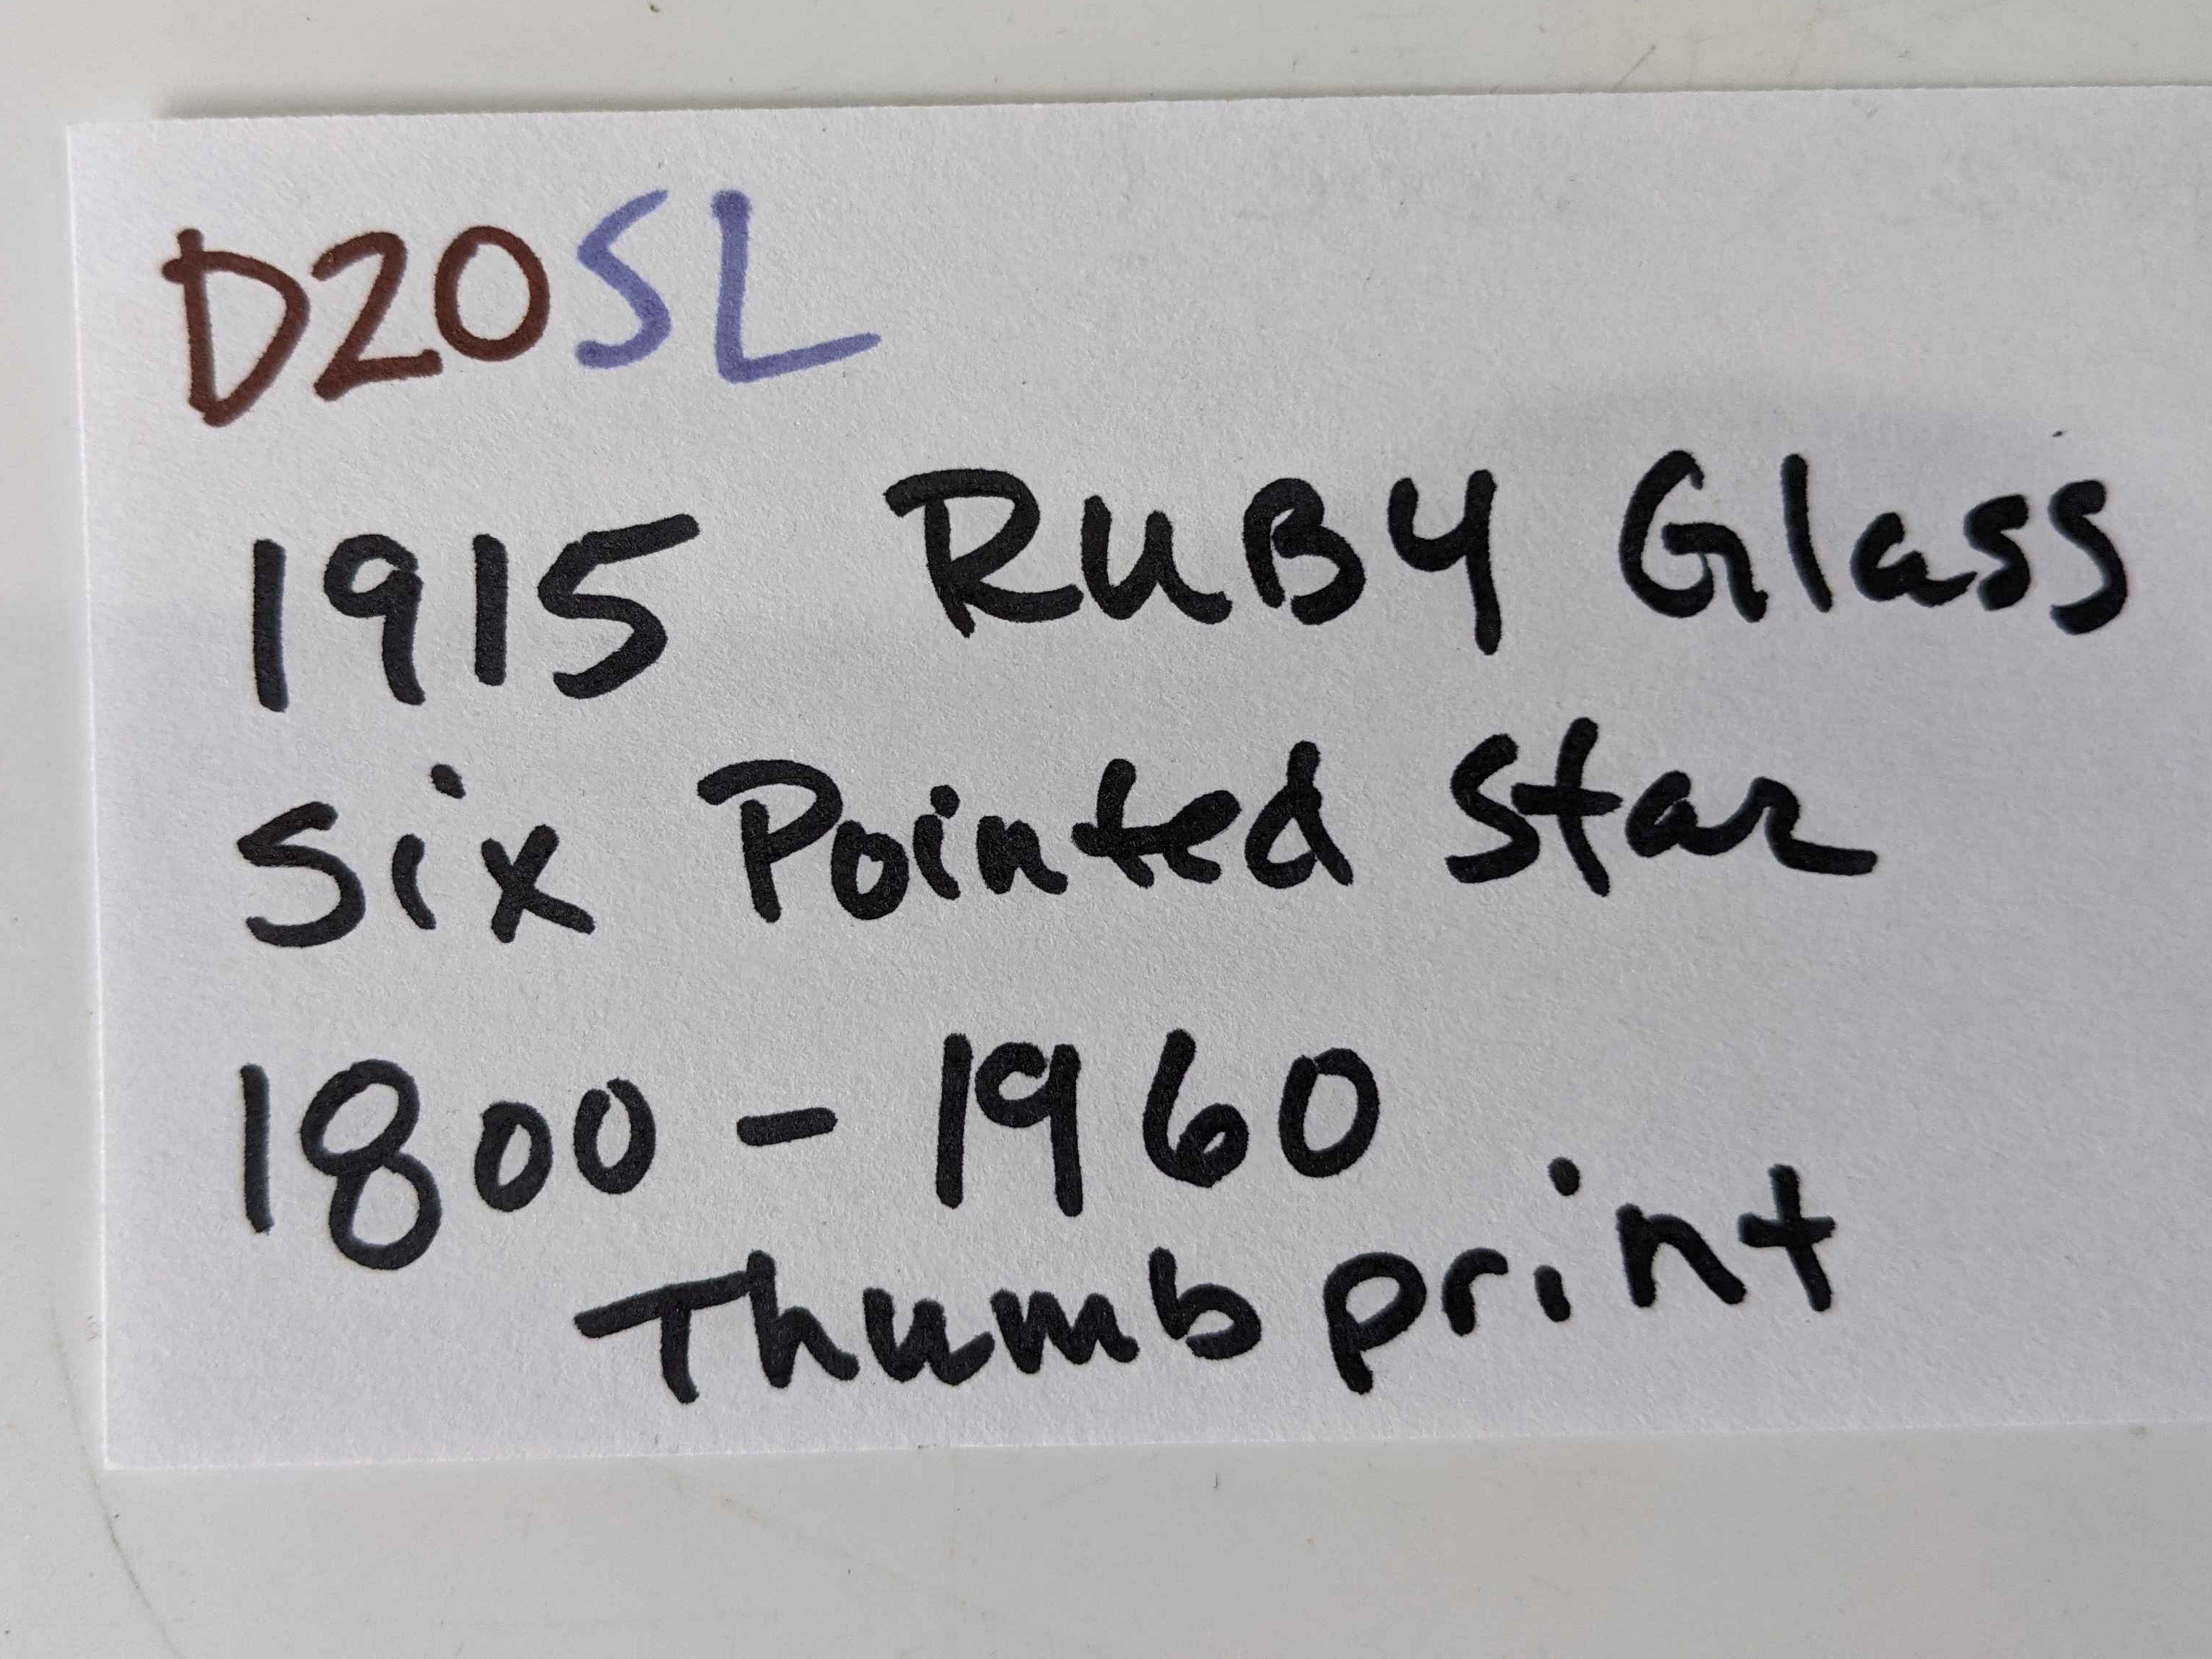 D20SL
1915 RUBY Glass
Six Pointed Star
1800 - 1960
Thumb print